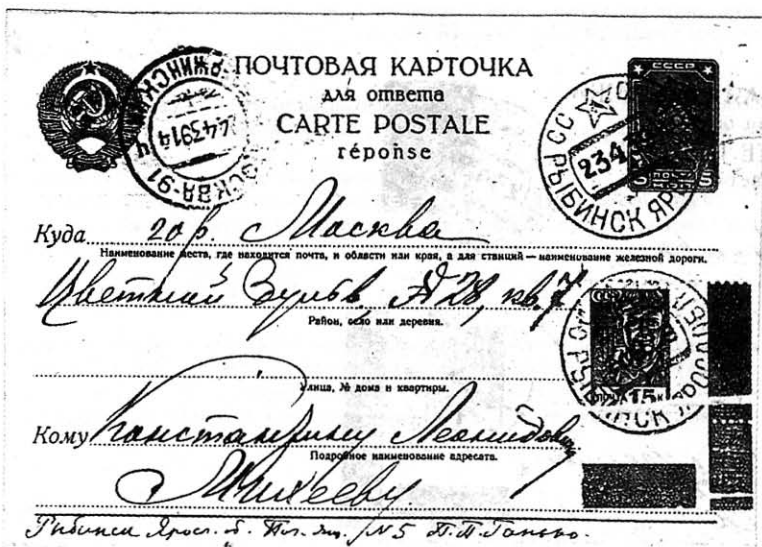 ПОЧТОВАЯ КАРТОЧКА
для ответа
CARTE POSTALE
réponse
СССР
5 5
МОСКВА-91
РЫБИНСК ЯРО
234
Куда гор. Москва
Наименование места, где находится почта, и области или края, а для станций — наименование железной дороги.
Цветной бульв, д 28, кв. 7
Район, село или деревня.
15к
Улица, № дома и квартиры.
Кому Константину Леонидовичу
Подробное наименование адресата.
Михееву
Рыбинск Яросл. о. Поч. ящ. № 5 П.П.